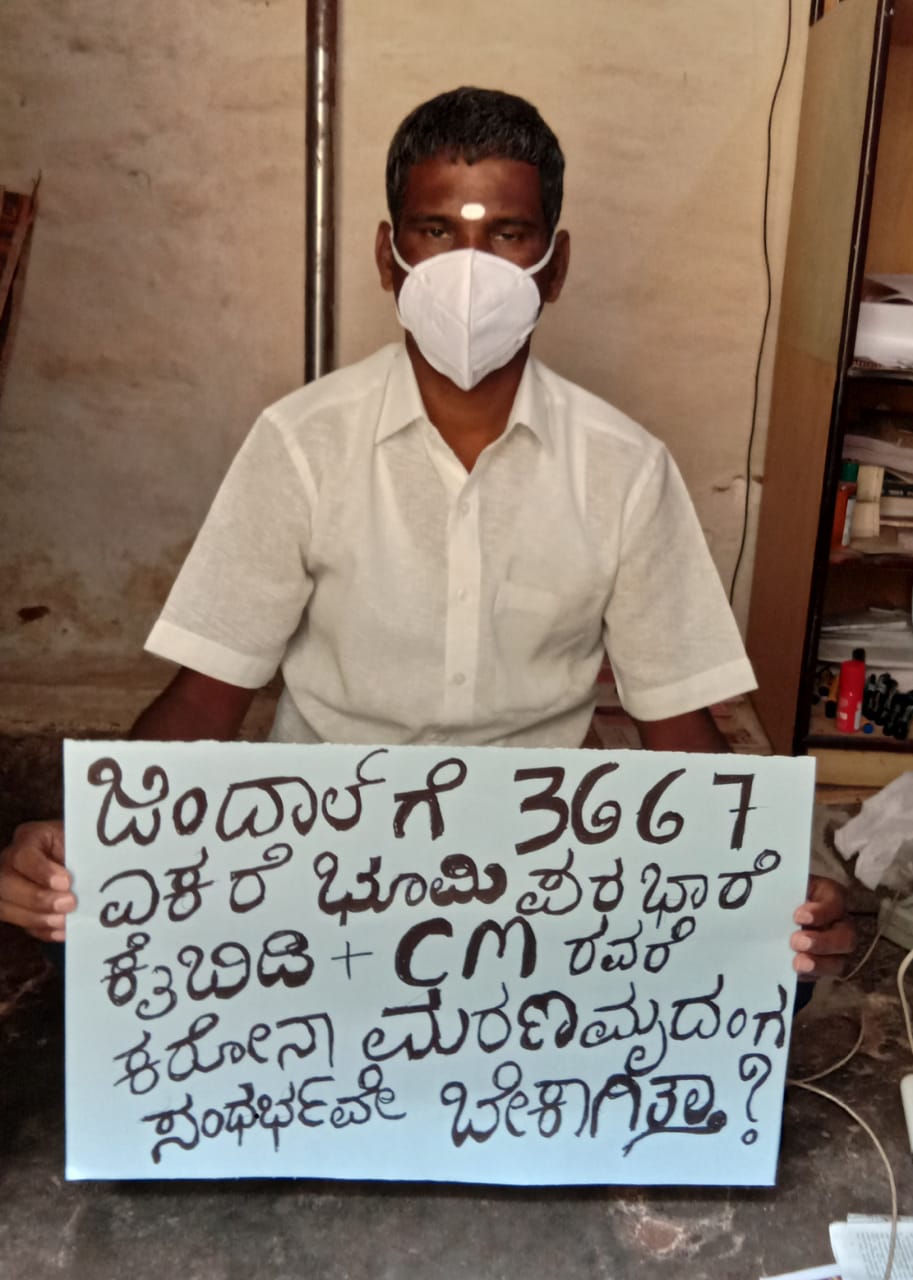 ಜಿಂದಾಲ್ ಗೆ 3667
ಎಕರೆ ಭೂಮಿ ಪರಭಾರೆ
ಕೈಬಿಡಿ + CM ರವರೆ
ಕರೋನಾ ಮರಣಮೃದಂಗ
ಸಂಧರ್ಭವೇ ಬೇಕಾಗಿತ್ತಾ?